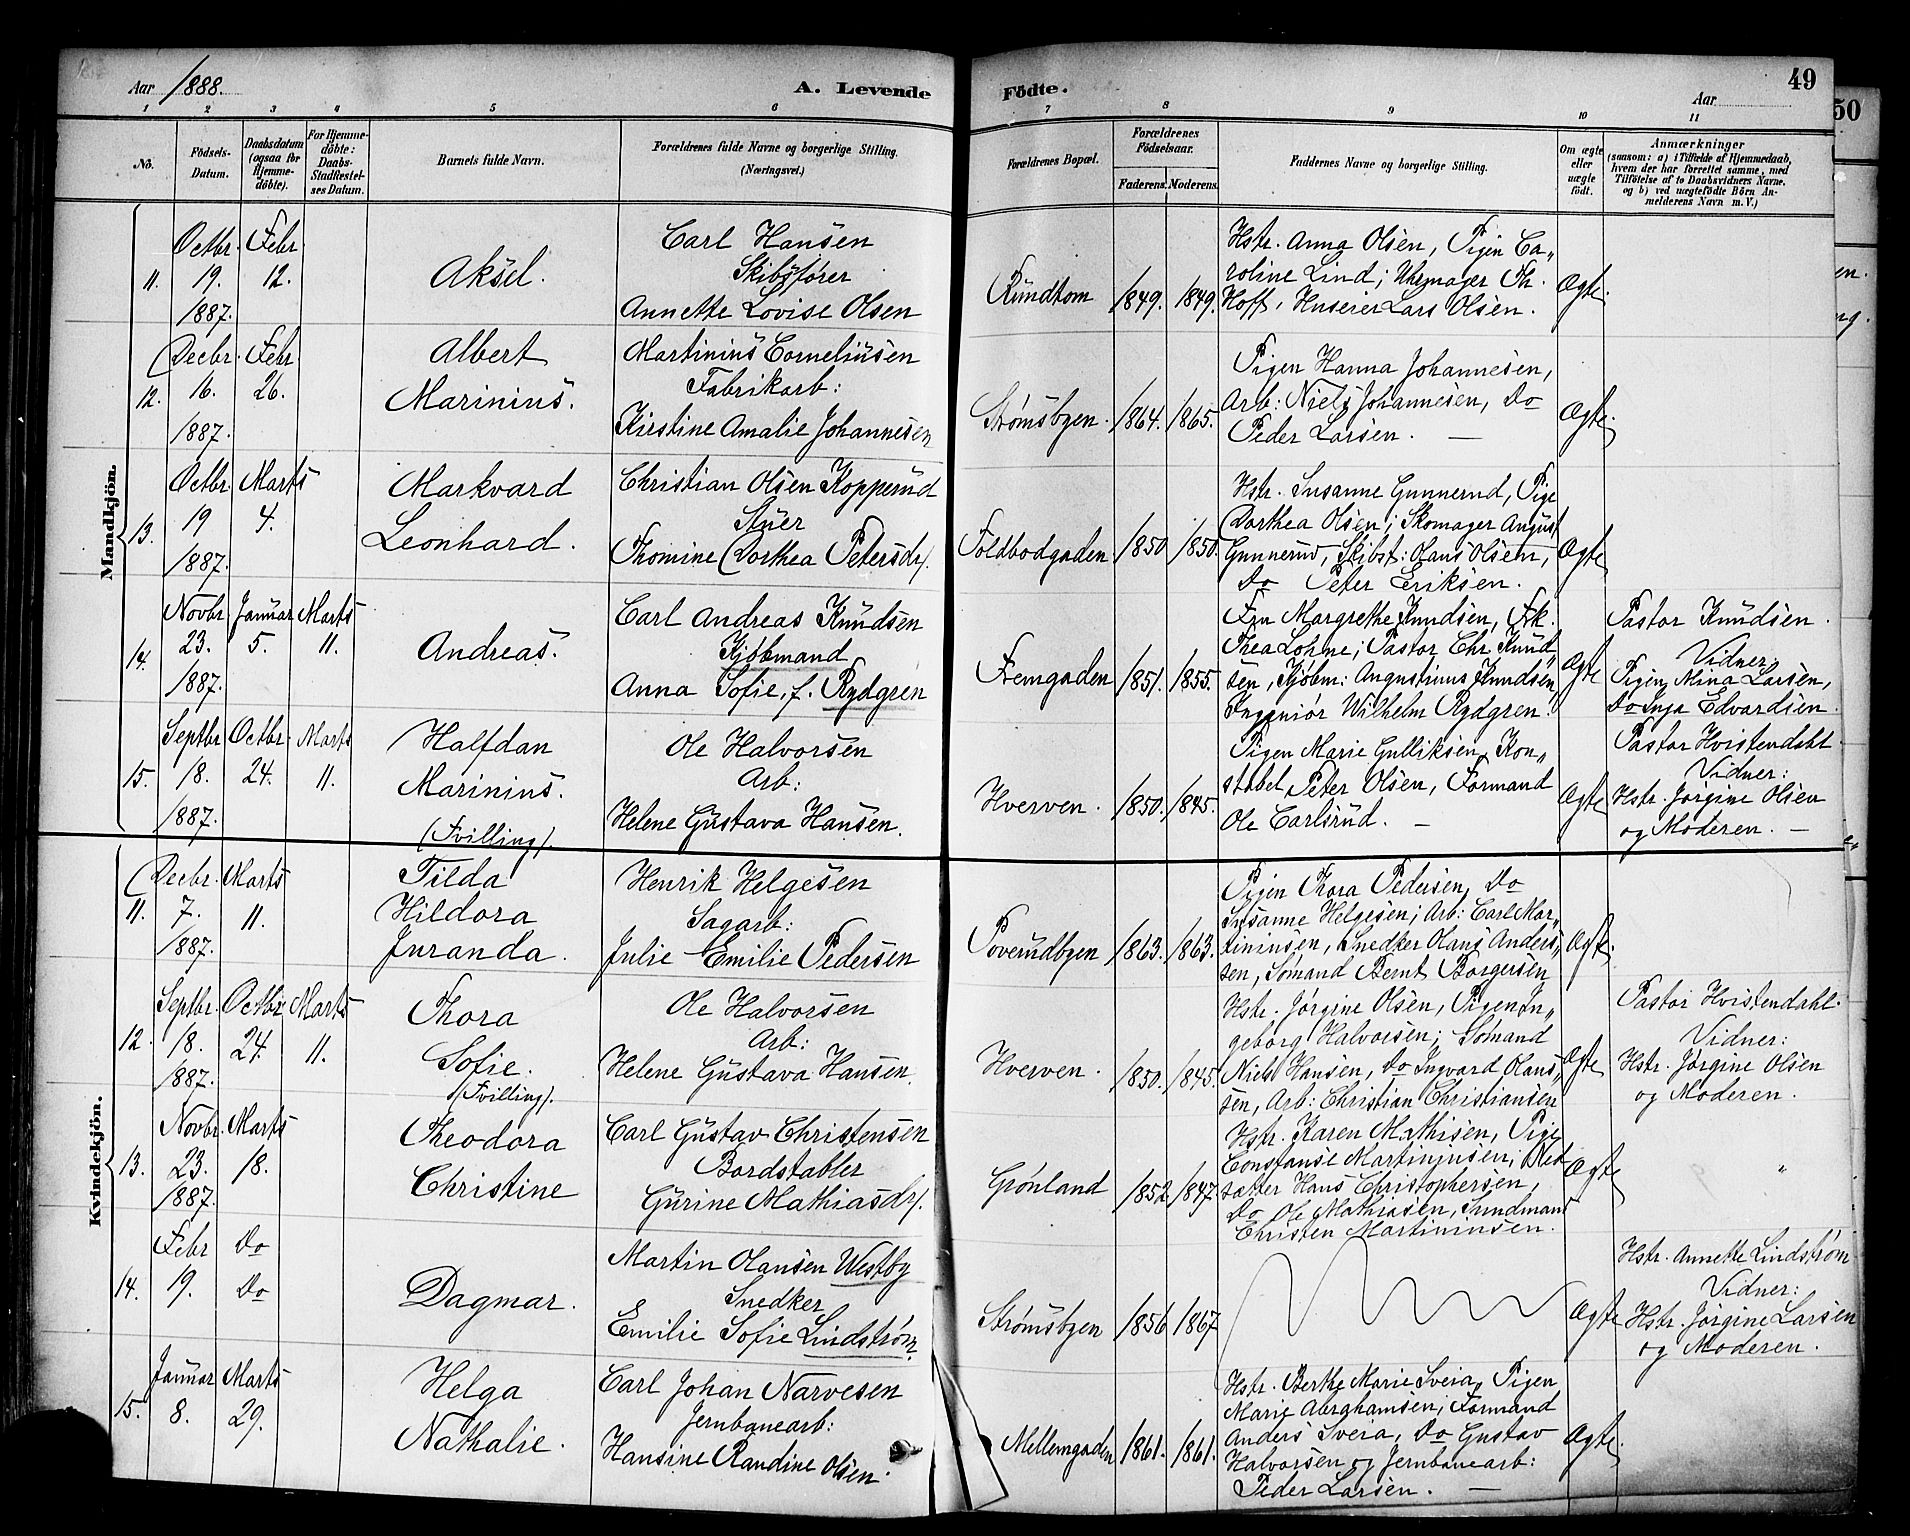 Aar 1888. A. Levende Födte. Aar 49
50
1 2 3 4 5 6 7 8 9 10 11
No. Födsels-Datum. Daabsdatum (ogsaa for Hjemme-döbte). For Hjemme-döbte: Daabs-Stadfæstel-ses Datum. Barnets fulde Navn. Forældrenes fulde Navne og borgerlige Stilling. (Næringsvei.) Forældrenes Bopæl. Forældrenes Födselsaar. Faderens. Moderens. Faddernes Navne og borgerlige Stilling. Om ægte eller uægte födt. Anmærkninger (saasom: a) i Tilfælde af Hjemmedaab, hvem der har forrettet samme, med Tilföielse af to Daabsvidners Navne, og b) ved uægtefödte Börn Anmelderens Navn m. V.)
Mandkjön.
11. Octbr. 19. 1887. Febr 12.
Aksel.
Carl Hansen
Skibsfører
Annette Lovise Olsen
Rundtom 1849. 1849.
Hstr. Anna Olsen, Pigen Ca„
roline Lind; Uhrmager Th.
Hoff, Huseier Lars Olsen.
Ægte.
12. Decbr. 16. 1887. Febr 26.
Albert
Marinius.
Martinius Corneliusen
Fabrikarb:
Kirstine Amalie Johannesen
Strømsbyen. 1864. 1865.
Pigen Hanna Johannesen,
Arb: Niels Johannesen, Do
Peder Larsen. —
Ægte.
13. Octbr. 19 1887. Marts 4.
Markvard
Leonhard.
Christian Olsen Kopperud
Stuer
Thomine Dorthea Petersdr.
Toldbodgaden 1850 1850.
Hstr. Susanne Gunnerud, Pige
Dorthea Olsen; Skomager August
Gunnerud, Skibst: Olaus Olsen,
Do Peter Eriksen.
Ægte
14. Novbr. 23. 1887. Januar 5. Marts 11.
Andreas.
Carl Andreas Knudsen
Kjøbmand
Anna Sofie, f. Rydgren
Fremgaden 1851. 1855.
Fru Margrethe Knudsen, Frk.
Thea Lohne; Pastor Chr Knud„
sen, Kjøbm: Augustinus Knudsen,
Ingeniør Wilhelm Rydgren.
Ægte
Pastor Knudsen.
Vidner:
Pigen Mina Larsen,
Do Inga Edvardsen.
15. Septbr 18. 1887. Octbr. 24. Marts 11.
Halfdan
Marinius.
(Tvilling).
Ole Halvorsen
Arb:
Helene Gustava Hansen.
Hverven. 1850. 1845.
Pigen Marie Gulliksen, Kon„
stabel Peter Olsen, Formand
Ole Carlsrud. —
Ægte
Pastor Hvistendahl.
Vidner:
Hstr. Jørgine Olsen
og Moderen. —
Kvindekjön.
11. Decbr. 7. 1887. Marts 11.
Tilda
Hildora
Juranda.
Henrik Helgesen
Sagarb:
Julie Emilie Pedersen
Poverudbyen 1863. 1863.
Pigen Thora Pedersen, Do
Susanne Helgesen; Arb: Carl Mar„
tiniusen, Snedker Olaus Anders„
sen, Sømand Bernt Borgersen
Ægte.
12. Septbr. 18. 1887. Octbr 24. Marts 11.
Thora
Sofie.
(Tvilling).
Ole Halvorsen
Arb:
Helene Gustava Hansen.
Hverven. 1850. 1845.
Hstr. Jørgine Olsen, Pigen In„
geborg Halvorsen; Sømand
Niels Hansen, Do Ingvard Olaus„
sen, Arb: Christian Christiansen
Ægte
Pastor Hvistendahl.
Vidner:
Hstr. Jørgine Olsen
og Moderen.
13. Novbr. 23. 1887. Marts 18.
Theodora
Christine
Carl Gustav Christensen
Bordstabler
Gurine Mathiasdr.
Grønland 1852 1847.
Hstr. Karen Mathisen, Pige
Constanse Martiniusen; Bød
Hans Christophersen,
Do Ole Mathiasen, Sundmand
Christen Martiniusen.
Ægte
"
14. Febr 19. Do Do
Dagmar.
Martin Olausen Westby
Snedker
Emilie Sofie Lindstrøm.
Strømsbyen 1856 1867
Ægte
Hstr. Annette Lindstrøm
Vidner:
Hstr. Jørgine Larsen
og Moderen.
15. Januar 8. Marts 29.
Helga
Nathalie.
Carl Johan Narvesen
Jernbanearb:
Hansine Randine Olsen.
Mellemgaden 1861. 1861.
Hstr. Berthe Marie Sveia, Pigen
Marie Abrahamsen; Formand
Anders Sveia, Do Gustav
Halvorsen og Jernbanearb:
Peder Larsen. —
Ægte.